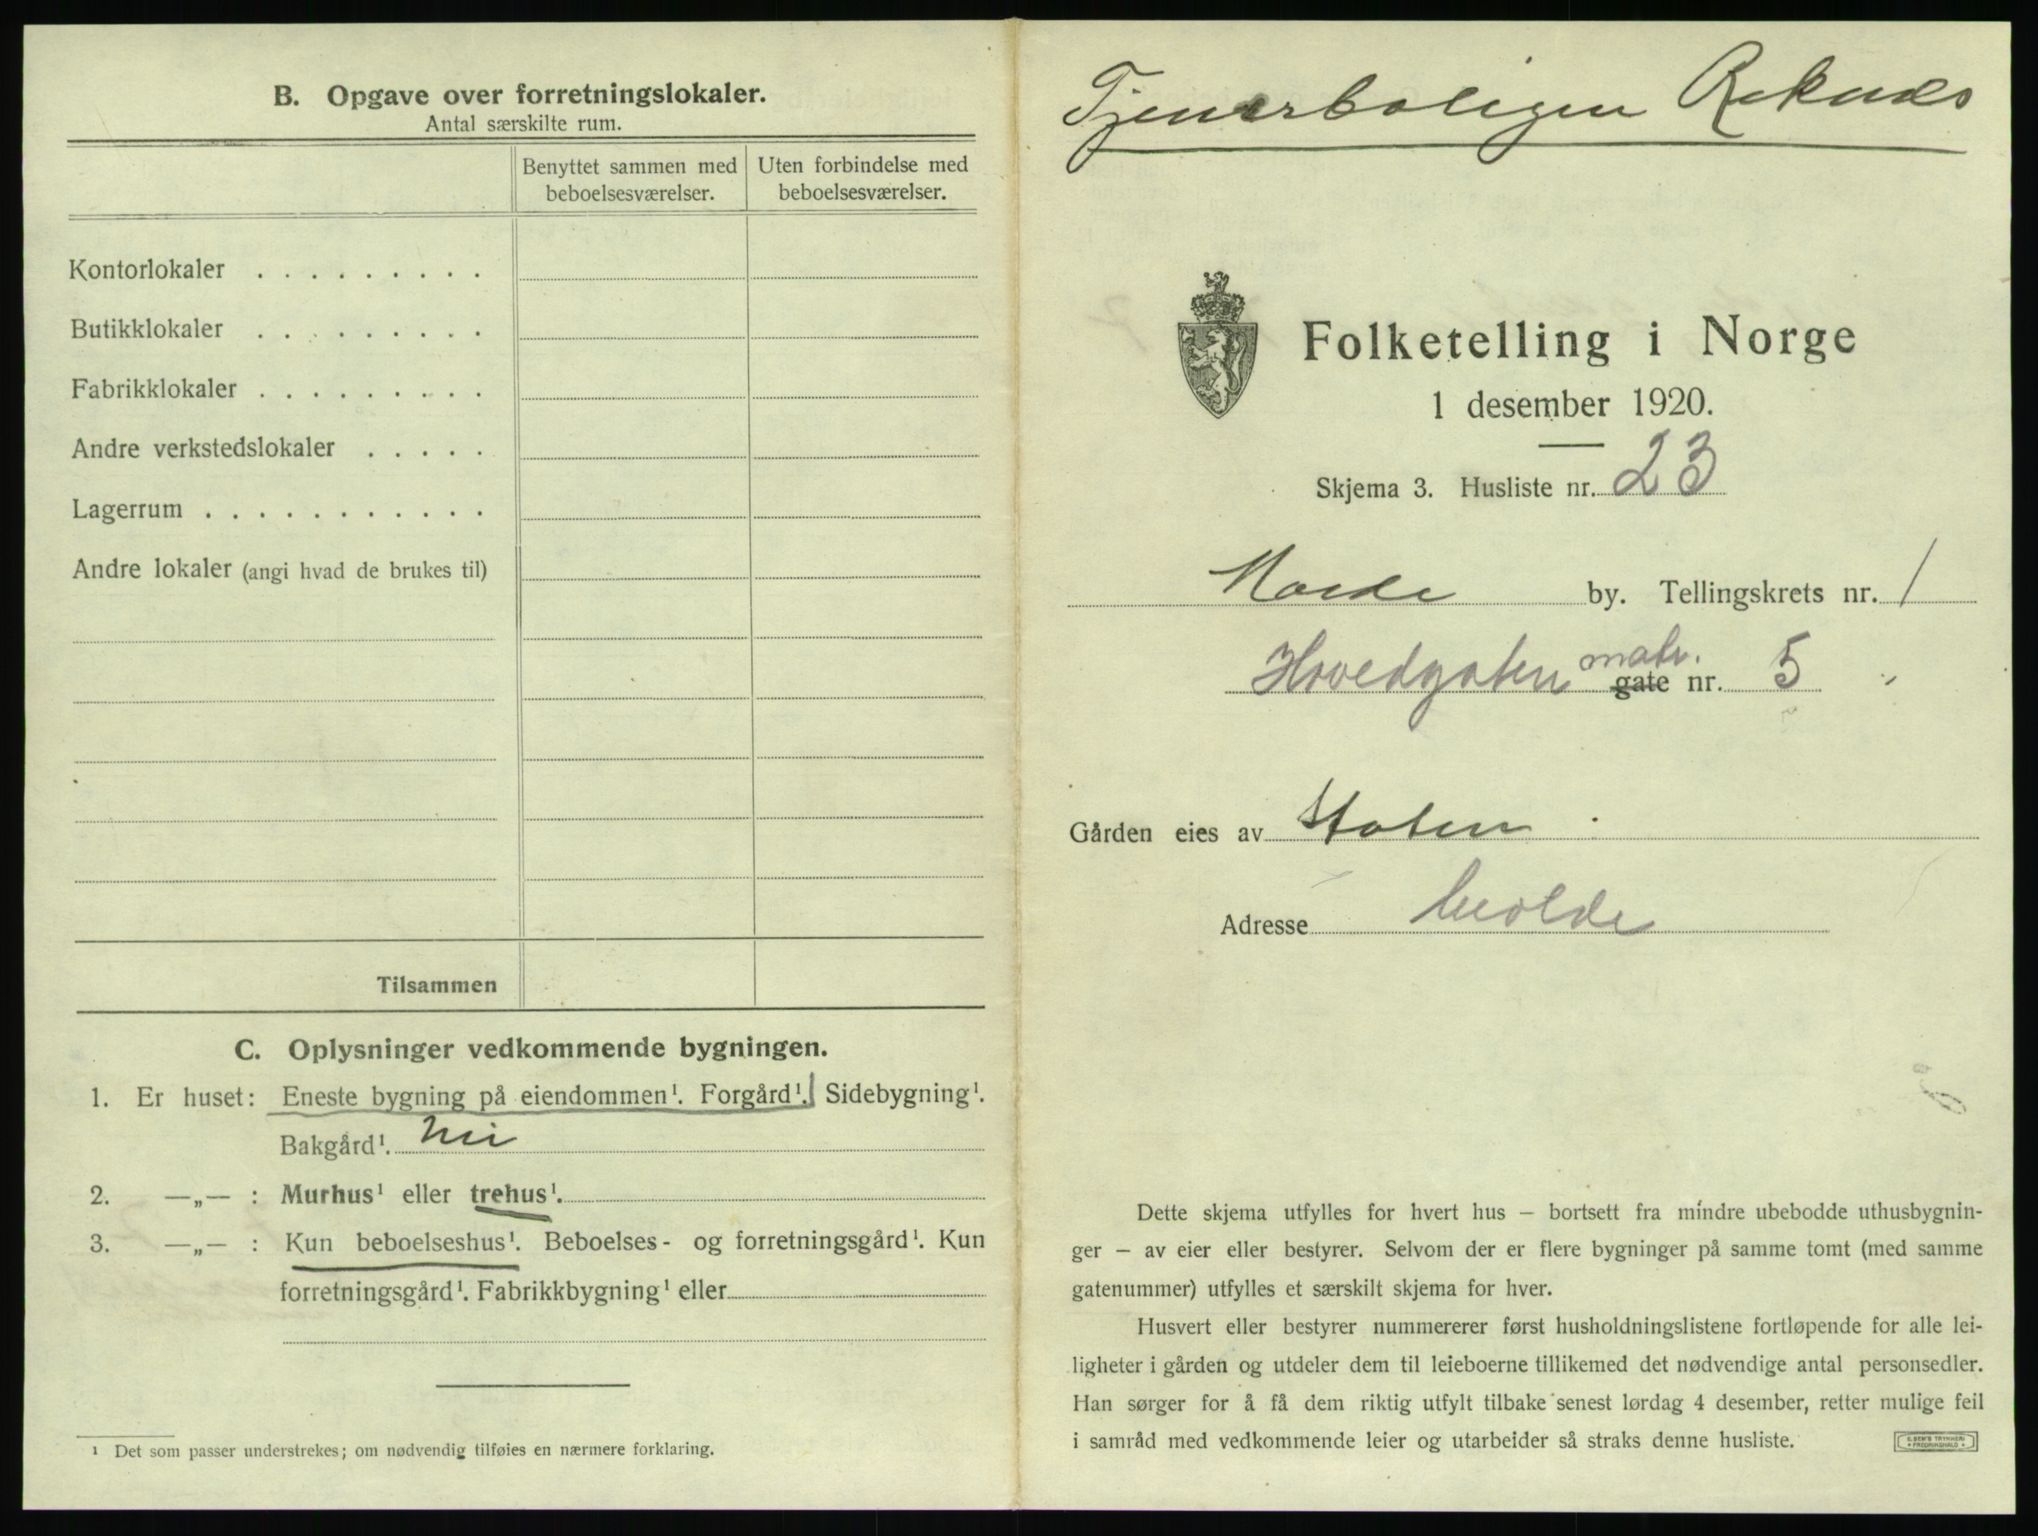 B. Opgave over forretningslokaler.
Antal særskilte rum.
Benyttet sammen med beboelsesværelser.
Uten forbindelse med beboelsesværelser.
Kontorlokaler . . . . . . . . .
Butikklokaler . . . . . . . . .
Fabrikklokaler . . . . . . . . .
Andre verkstedslokaler . . . . .
Lagerrum . . . . . . . . . . .
Andre lokaler (angi hvad de brukes til)
Tilsammen
C. Oplysninger vedkommende bygningen.
1. Er huset: Eneste bygning på eiendommen¹. Forgård¹. Sidebygning¹.
Bakgård¹. Nei
2. —„— : Murhus¹ eller trehus¹.
3. —„— : Kun beboelseshus¹. Beboelses- og forretningsgård¹. Kun
forretningsgård¹. Fabrikkbygning¹ eller
¹ Det som passer understrekes; om nødvendig tilføies en nærmere forklaring.
Tjenerboligen Reknes
Folketelling i Norge
1 desember 1920.
Skjema 3. Husliste nr. 23
Molde by. Tellingskrets nr. 1
Hovedgaten matr. gate nr. 5
Gården eies av Staten
Adresse Molde
Dette skjema utfylles for hvert hus – bortsett fra mindre ubebodde uthusbygnin-
ger – av eier eller bestyrer. Selvom der er flere bygninger på samme tomt (med samme
gatenummer) utfylles et særskilt skjema for hver.
Husvert eller bestyrer nummererer først husholdningslistene fortløpende for alle lei-
ligheter i gården og utdeler dem til leieboerne tillikemed det nødvendige antal personsedler.
Han sørger for å få dem riktig utfylt tilbake senest lørdag 4 desember, retter mulige feil
i samråd med vedkommende leier og utarbeider så straks denne husliste.